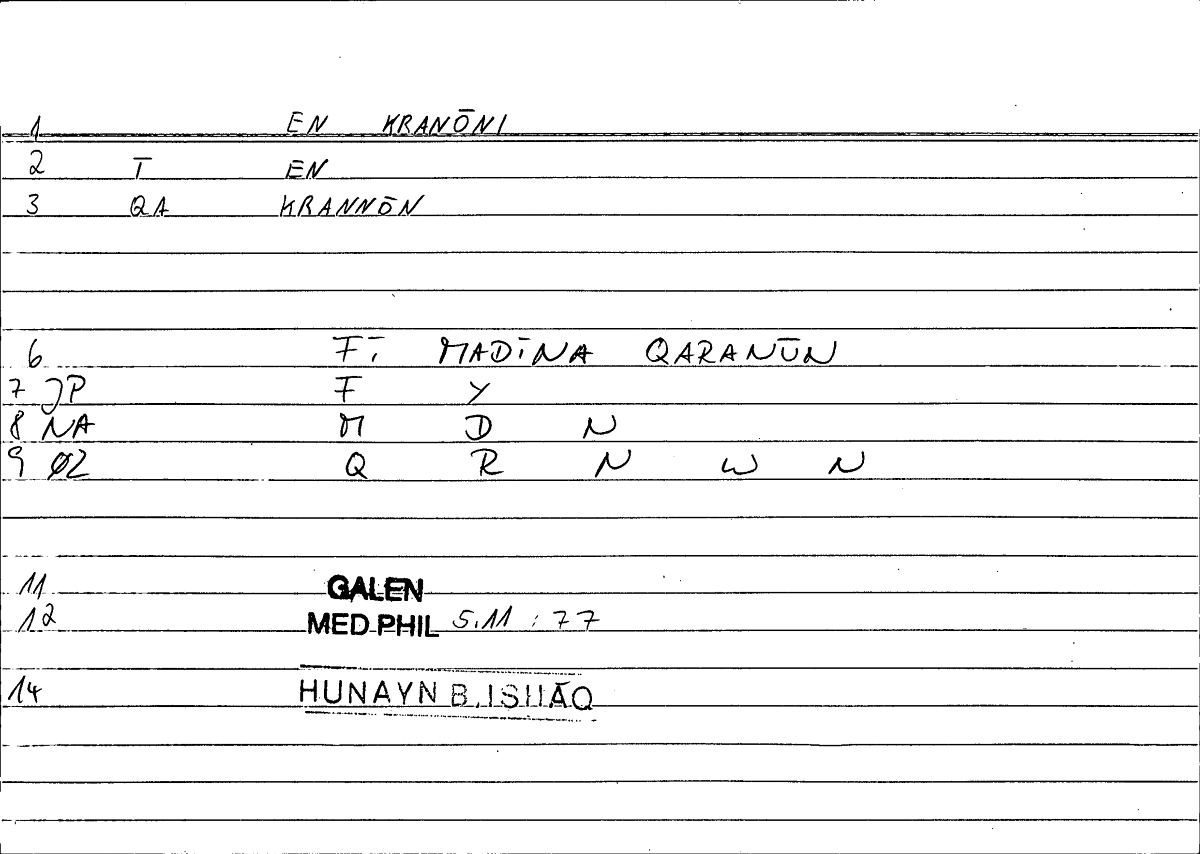 1 EN KRANŌNI
2 T EN
3 QA KRANNŌN
6 FĪ MADĪNA QARANŪN
7 JP F Y
8 NA M D N
9 ØZ Q R N W N
11 GALEN
12 MED.PHIL 5.11 : 77
14 HUNAYN B. ISḤĀQ